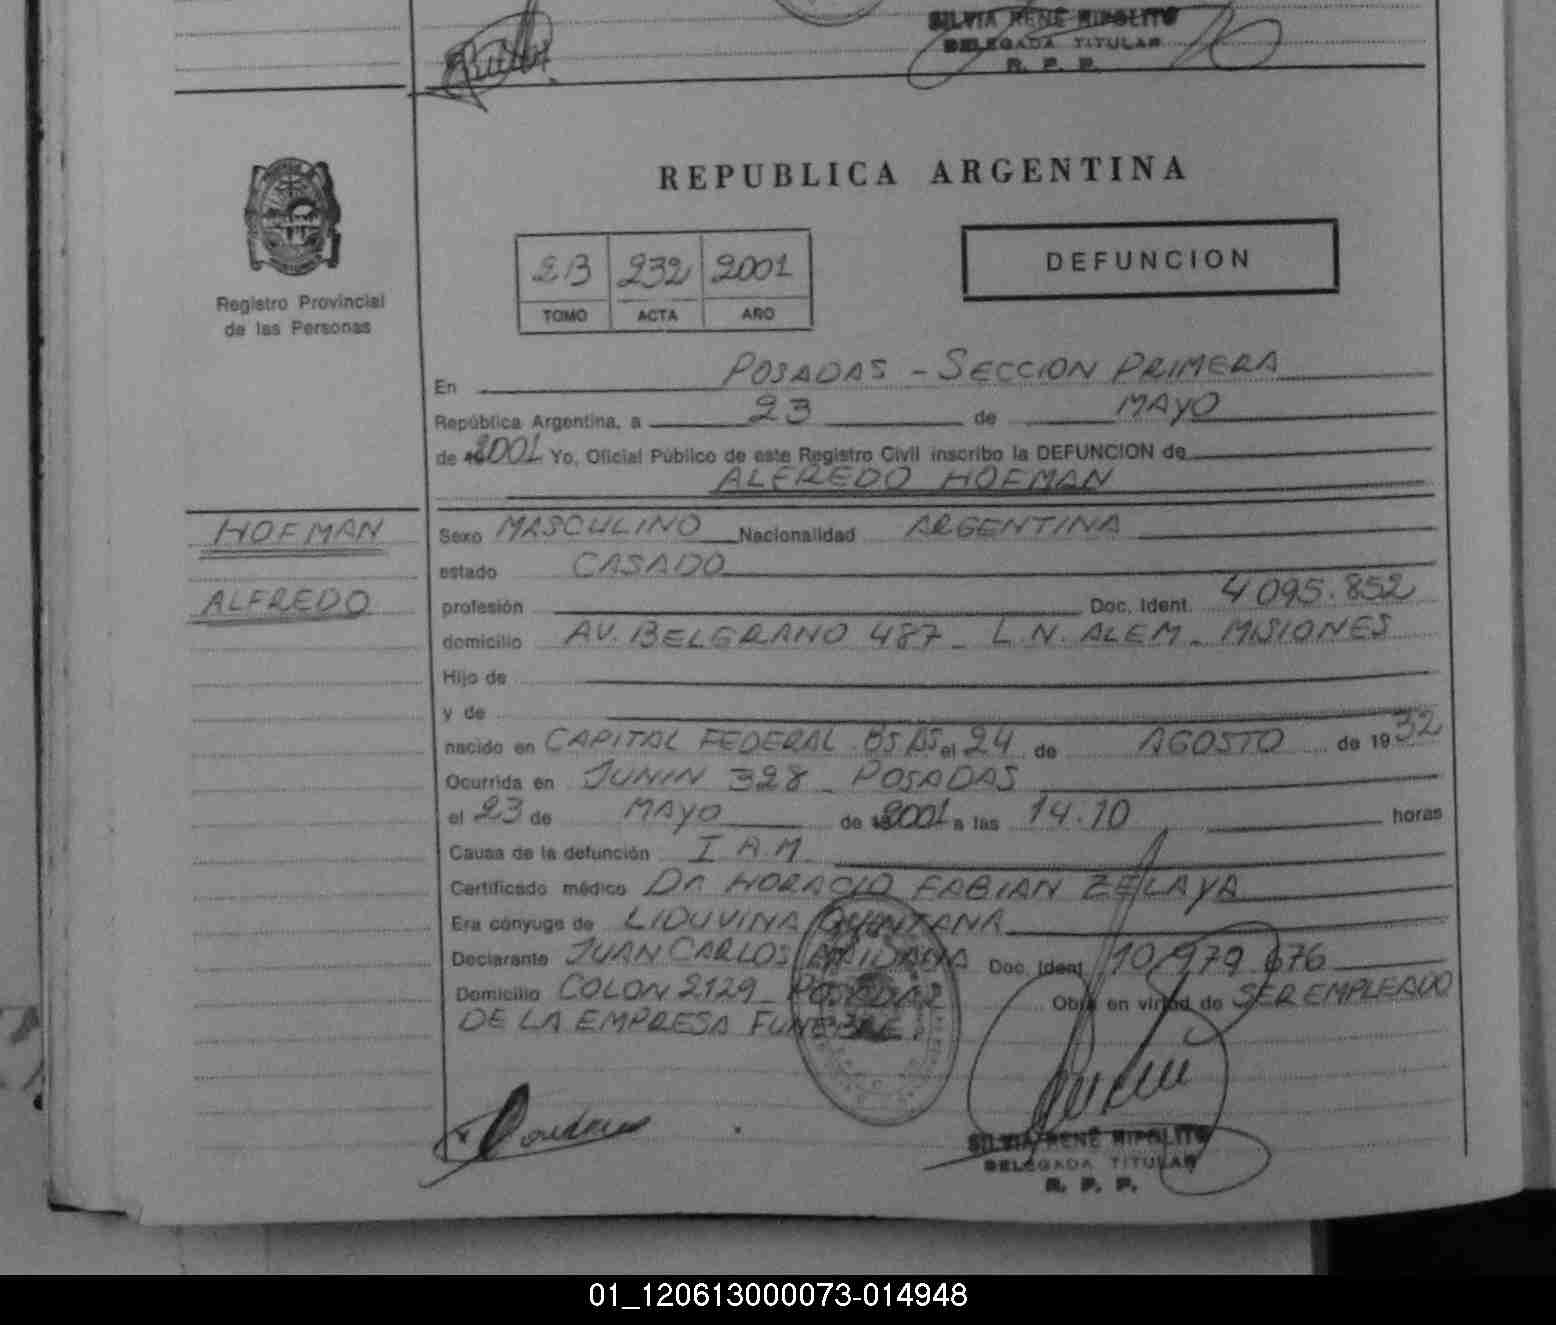 SILVIA RENÉ RIPOLITO
DELEGADA TITULAR
R. P. P.
REPUBLICA ARGENTINA
Registro Provincial
de las Personas
2B 232 2001
TOMO ACTA AÑO
DEFUNCION
En POSADAS - SECCION PRIMERA
República Argentina, a 23 de MAYO
de 2001 Yo, Oficial Público de este Registro Civil inscribo la DEFUNCION de
ALFREDO HOFMAN
HOFMAN
ALFREDO
Sexo MASCULINO Nacionalidad ARGENTINA
estado CASADO
profesión Doc. Ident. 4095.852
domicilio AV. BELGRANO 487 - L.N. ALEM - MISIONES
Hijo de
y de
nacido en CAPITAL FEDERAL BS AS el 24 de AGOSTO de 1932
Ocurrida en JUNIN 328 - POSADAS
el 23 de MAYO de 2001 a las 14.10 horas
Causa de la defunción I A.M.
Certificado médico Dr HORACIO FABIAN ZELAYA
Era cónyuge de LIDUVINA QUINTANA
Declarante JUAN CARLOS Doc. Ident 10.979.676
Domicilio COLON 2129 - POSADAS Obra en virtud de SER EMPLEADO
DE LA EMPRESA FUNEBRE.
SILVIA RENÉ RIPOLITO
DELEGADA TITULAR
R. P. P.
01_120613000073-014948